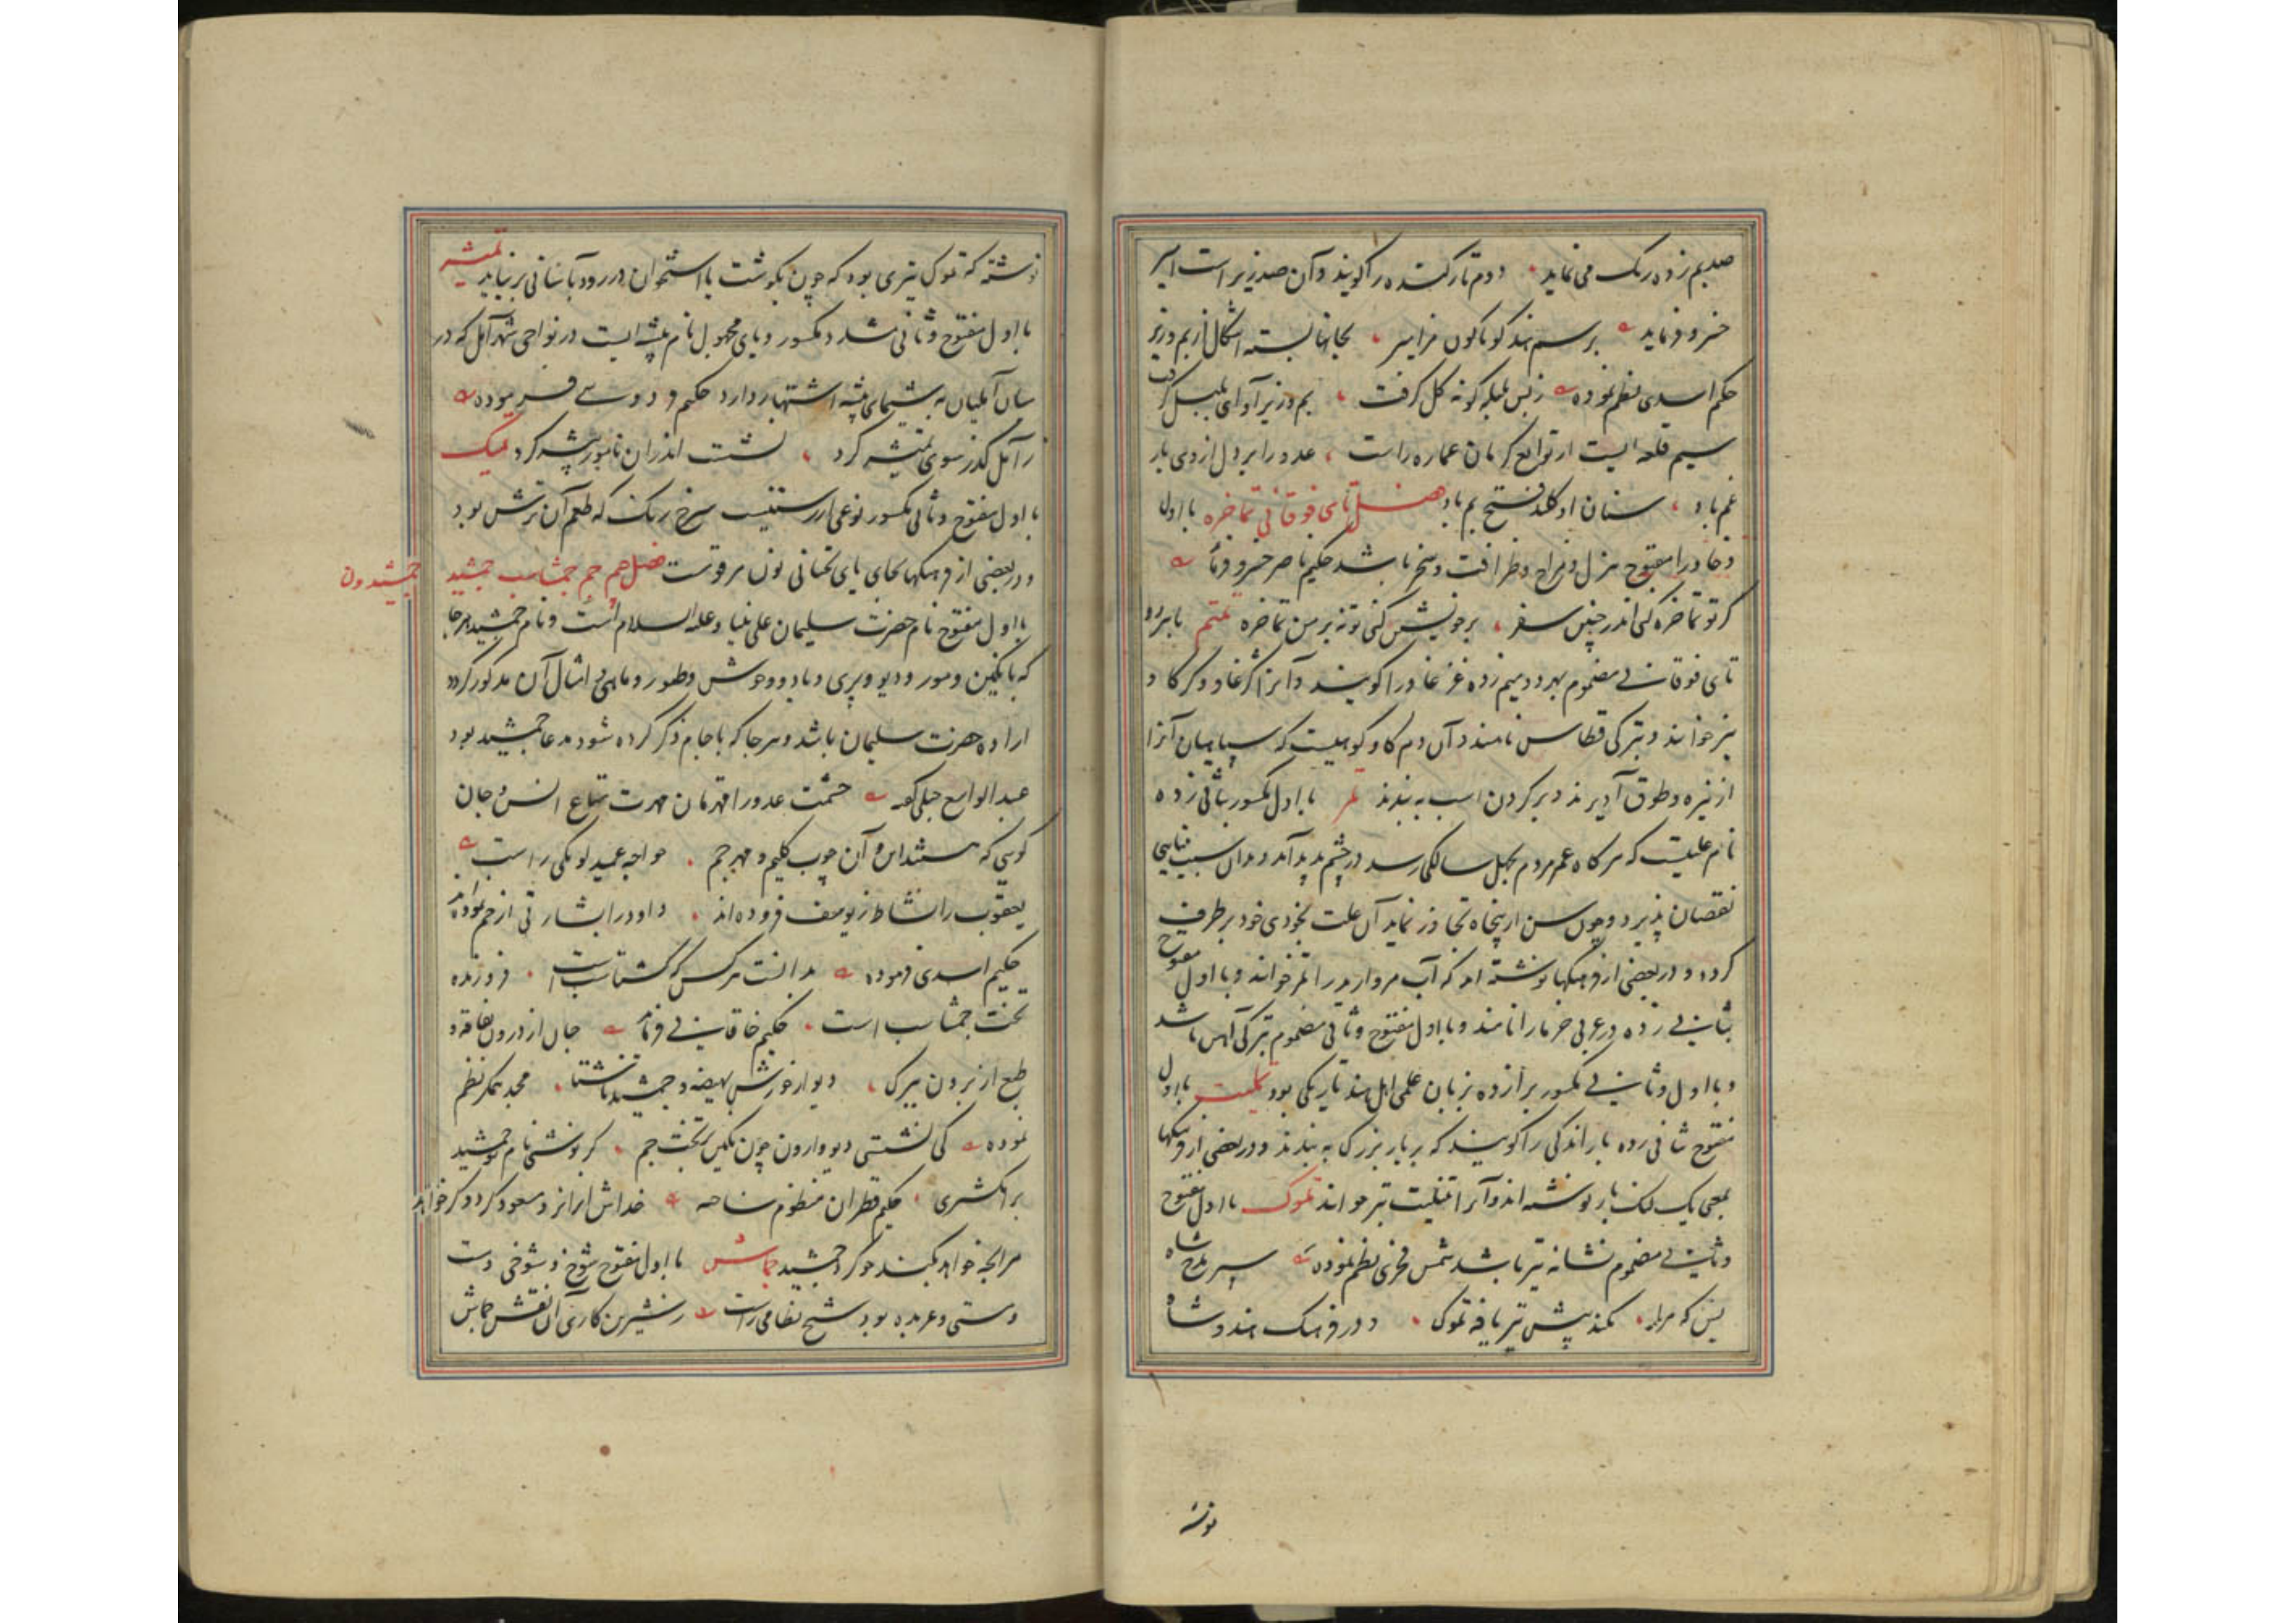 صد بم زده رنک می نماید دوم تار کنده را کویند و آن ضد زیر است امیر
خسرو فرماید برسم هند کوناکون مزامیر بجانها بسته اشکال از بم و زیر
حکیم اسدی نظم نموده زبس بلبله کونه کل کرفت بم و زیر آوای بلبل کرفت
سیم قلعه ایست از توابع کرمان عماره راست عدو را بر دل از وی بار
غم باد سنان او کلید فتح بم باد فصل تای فوقانی تماخره با اول
و خا و را مفتوح هزل و مزاح و ظرافت و سخر باشد حکیم ناصر خسرو فرماید
کر تو تماخره کنی اندر چنین سفر بر خویش کنی تو نه بر من تماخره تمتم با هر دو
تای فوقانی مضموم بهر دو میم زده غژغاو را کویند و آنرا کژغاو و کرکا و
نیز خوانند و بترکی قطاس نامند و آن دم کاو کوهیست که سپاهیان آنرا
از نیزه و طوق آویزند و بر کردن اسب به بندند تمر با اول مکسور بثانی زده
نام علتیست که هر کاه عمر مردم بچهل سالکی رسد در چشم پدید آمد و بدان سبب بینایی
نقصان پذیرد و چون سن از پنجاه تجاوز نماید آن علت بخودی خود برطرف
کردد و در بعضی از فرهنکها نوشته اند که آب مروارید را تمر خوانند و با اول مفتوح
بثانی زده در عربی خرما را نامند و با اول مفتوح و ثانی مضموم بترکی آهن باشد
و با اول و ثانی مکسور برا زده بزبان علمی اهل هند تاریکی بود تملیت با اول
مفتوح ثانی زده بار اندکی را کویند که بر بار بزرک به بندند و در بعضی از فرهنکها
بمعنی یک لنک بار نوشته اند و آنرا تنلیت نیز خوانند تموک با اول مفتوح
و ثانی مضموم نشانه تیر باشد شمس فخری نظم نموده سپر مدح شاه
بین که مرا کند پیش تیر یافه تموک و در فرهنک هندوشاه
نوشته
نوشته که تموک تیری بود که چون بکوشت یا استخوان در رود بآسانی بر نیاید تمیشه
با اول مفتوح و ثانی مشدد مکسور و یای مجهول نام بیشه ایست در نواحی شهر آمل که در
میان آملیان به بیشهای بیشه اشتهار دارد حکیم فردوسی فرموده
ز آمل کذر سوی تمیشه کرد نشست اندران نامور بیشه کرد تمیک
با اول مفتوح و ثانی مکسور نوعی از رستنیست سرخ رنک که طعم آن ترش بود
و در بعضی از فرهنکها بجای یای تحتانی نون مرقوست فصل جیم جم جمشاسب جمشید جمشیدون
با اول مفتوح نام حضرت سلیمان علی نبینا و علیه السلام است و نام جمشید هر جا
که با نکین و مور و دیو و پری و باد و وحوش و طیور و ماهی و امثال آن مذکور کردد
اراده حضرت سلیمان باشد و هر جا که با جام ذکر کرده شود مدعا جمشید بود
عبدالواسع جبلی کفته حشمت عدو را قهرمان مهرت متاع انس و جان
کویی که هستند این و آن چوب کلیم و مهر جم خواجه عمید لومکی راست
یعقوب را نشاط ز یوسف فزوده اند داود را بشارتی از جم نموده اند
حکیم اسدی فرموده بدانست هر کس که کشتاسب است فروزنده
تخت جمشاسب است حکیم خاقانی فرماید جان از درون بفاقه و
طبع از برون ببرک دیو از خورش بهیضه و جمشید ناشتا مجد همکر نظم
نموده کی نشستی دیو وارون چون نکین بر تخت جم کر نوشتی نام جمشید
بر انکشتری حکیم قطران منظوم ساخته خداش از انزد مسعود کردد کر خواهد
مر آنچه خواهد بکند جو کرد جمشید جماش با اول مفتوح شوخ و شوخی و مست
و مستی و عربده بود شیخ نظامی راست ز شیرین کاری آن نقش جماش